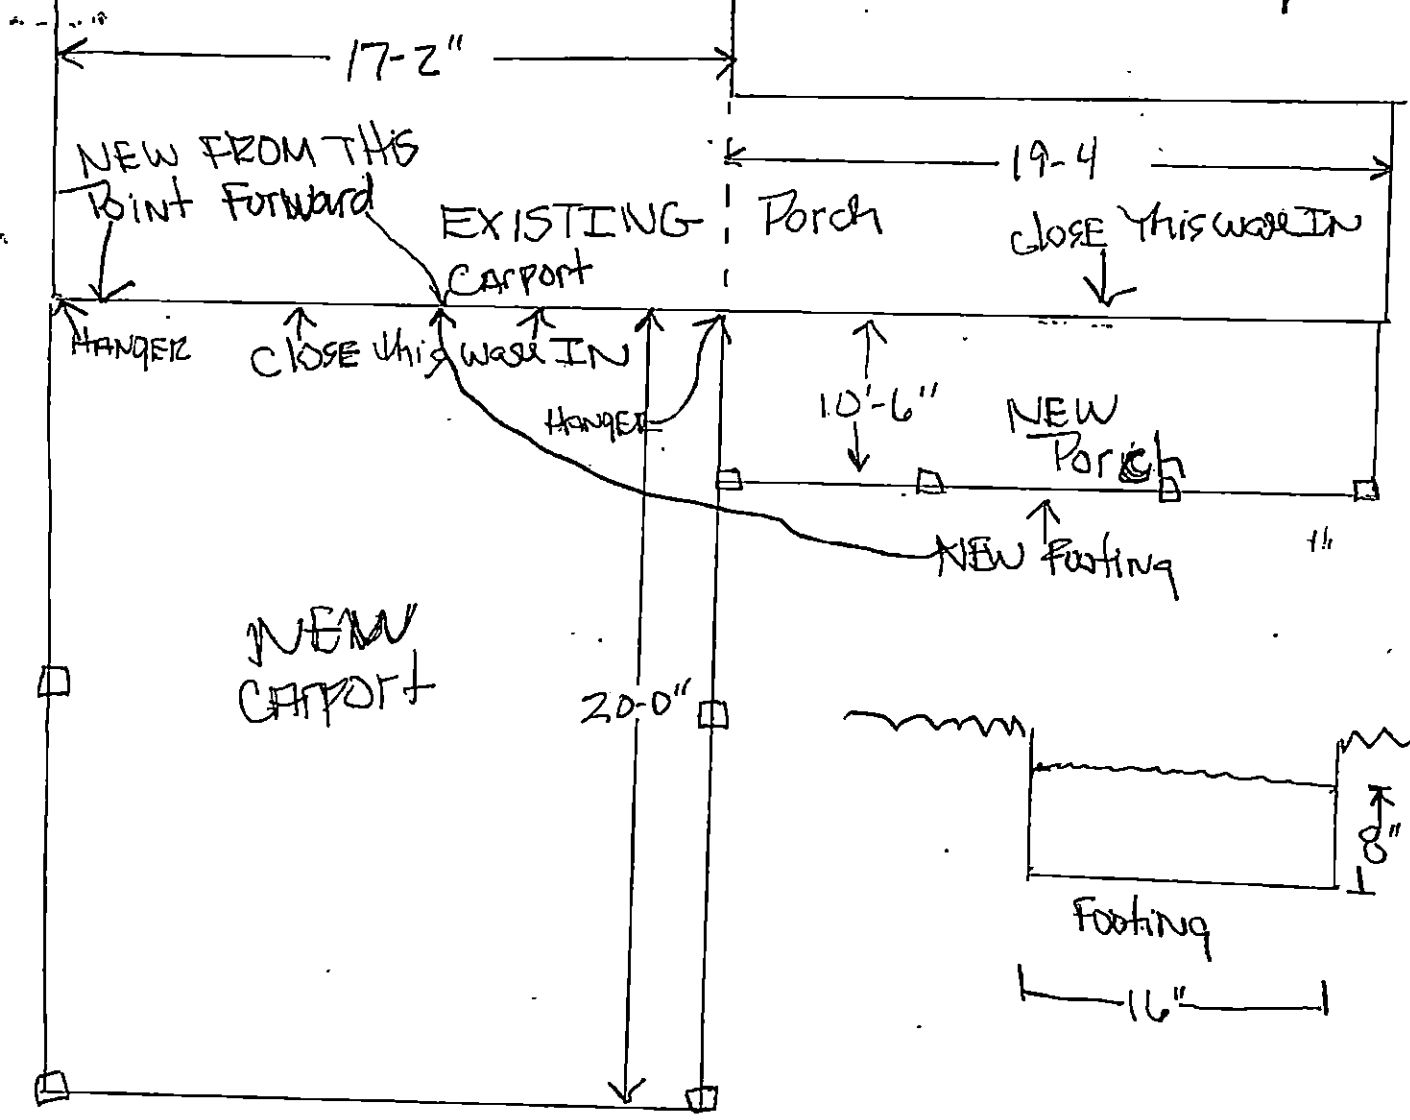 17-2"
NEW FROM THIS
Point Forward
19-4
EXISTING
CArport
Porch
closE This wall IN
HANGER
ClOSE this wall IN
HANGER
10'-6"
NEW
Porch
NEW Footing
NEW
CArport
20-0"
8"
Footing
16"